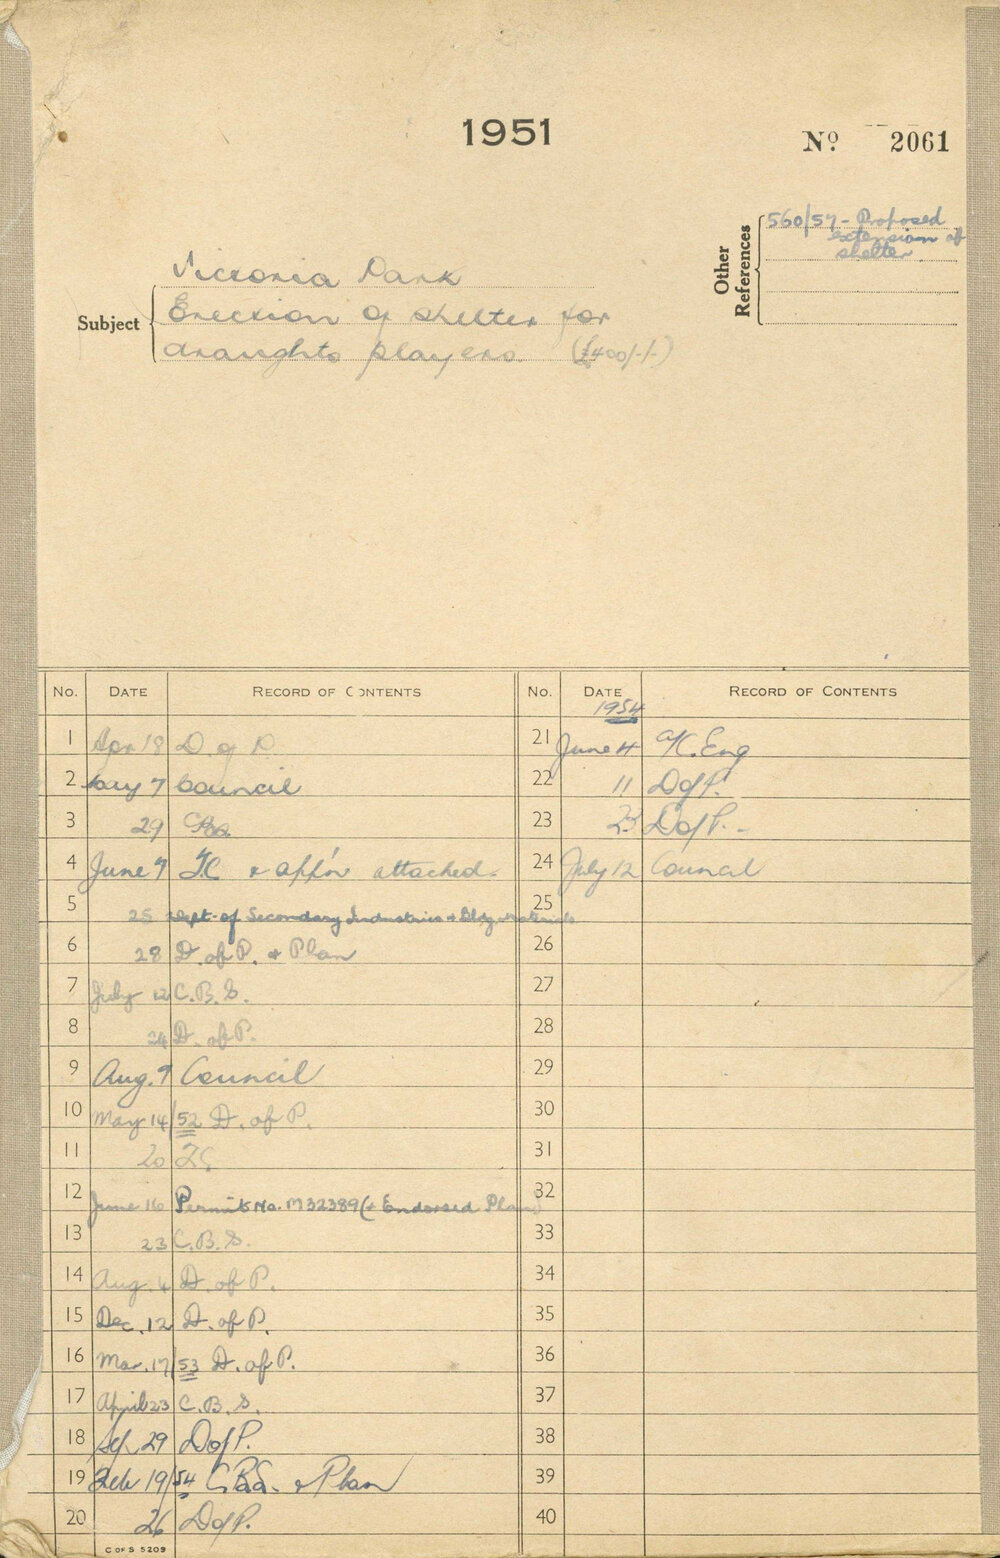 1951
No 2061
Other References
560/57 - Proposed
extension of
shelter
Subject
Victoria Park
Erection of shelter for
draughts players. (£400/-/-)
No. DATE RECORD OF CONTENTS
1 Apr 18 D. of P.
2 May 7 Council
3 29
4 June 7 T.C. & app'n attached.
5 25 Dept. of Secondary Industries & Bldg. Materials
6 28 D. of P. & Plan
7 July 12 C.B.S.
8 24 D. of P.
9 Aug. 9 Council
10 May 14/52 D. of P.
11 20
12 June 16 Permit No. M32389 (& Endorsed Plan)
13 23 C.B.S.
14 Aug. 4 D. of P.
15 Dec. 12 D. of P.
16 Mar. 17/53 D. of P.
17 April 23 C.B.S.
18 Sep 29 D of P.
19 Feb 19/54 C.B.S. & Plan
20 26 D of P.
C OF S 5209
No. DATE RECORD OF CONTENTS
1954
21 June 4 A/C. Eng
22 11 D of P.
23 23 D of P. -
24 July 12 Council
25
26
27
28
29
30
31
32
33
34
35
36
37
38
39
40